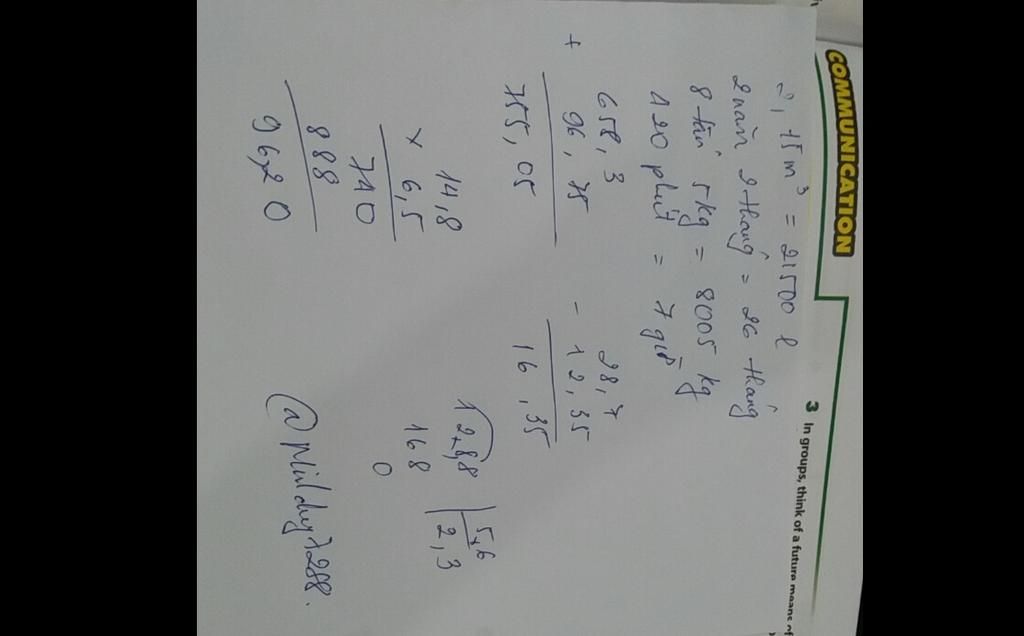 COMMUNICATION
3 In groups, think of a future means of
21,75m³ = 21500 l
2 năm 2 tháng = 26 tháng
8 tấn 5 kg = 8005 kg
420 phút = 7 giờ
658,3
+ 96,75
755,05
28,7
- 12,35
16,35
14,8
× 6,5
740
888
96,20
12,88 5,6
168 2,3
0